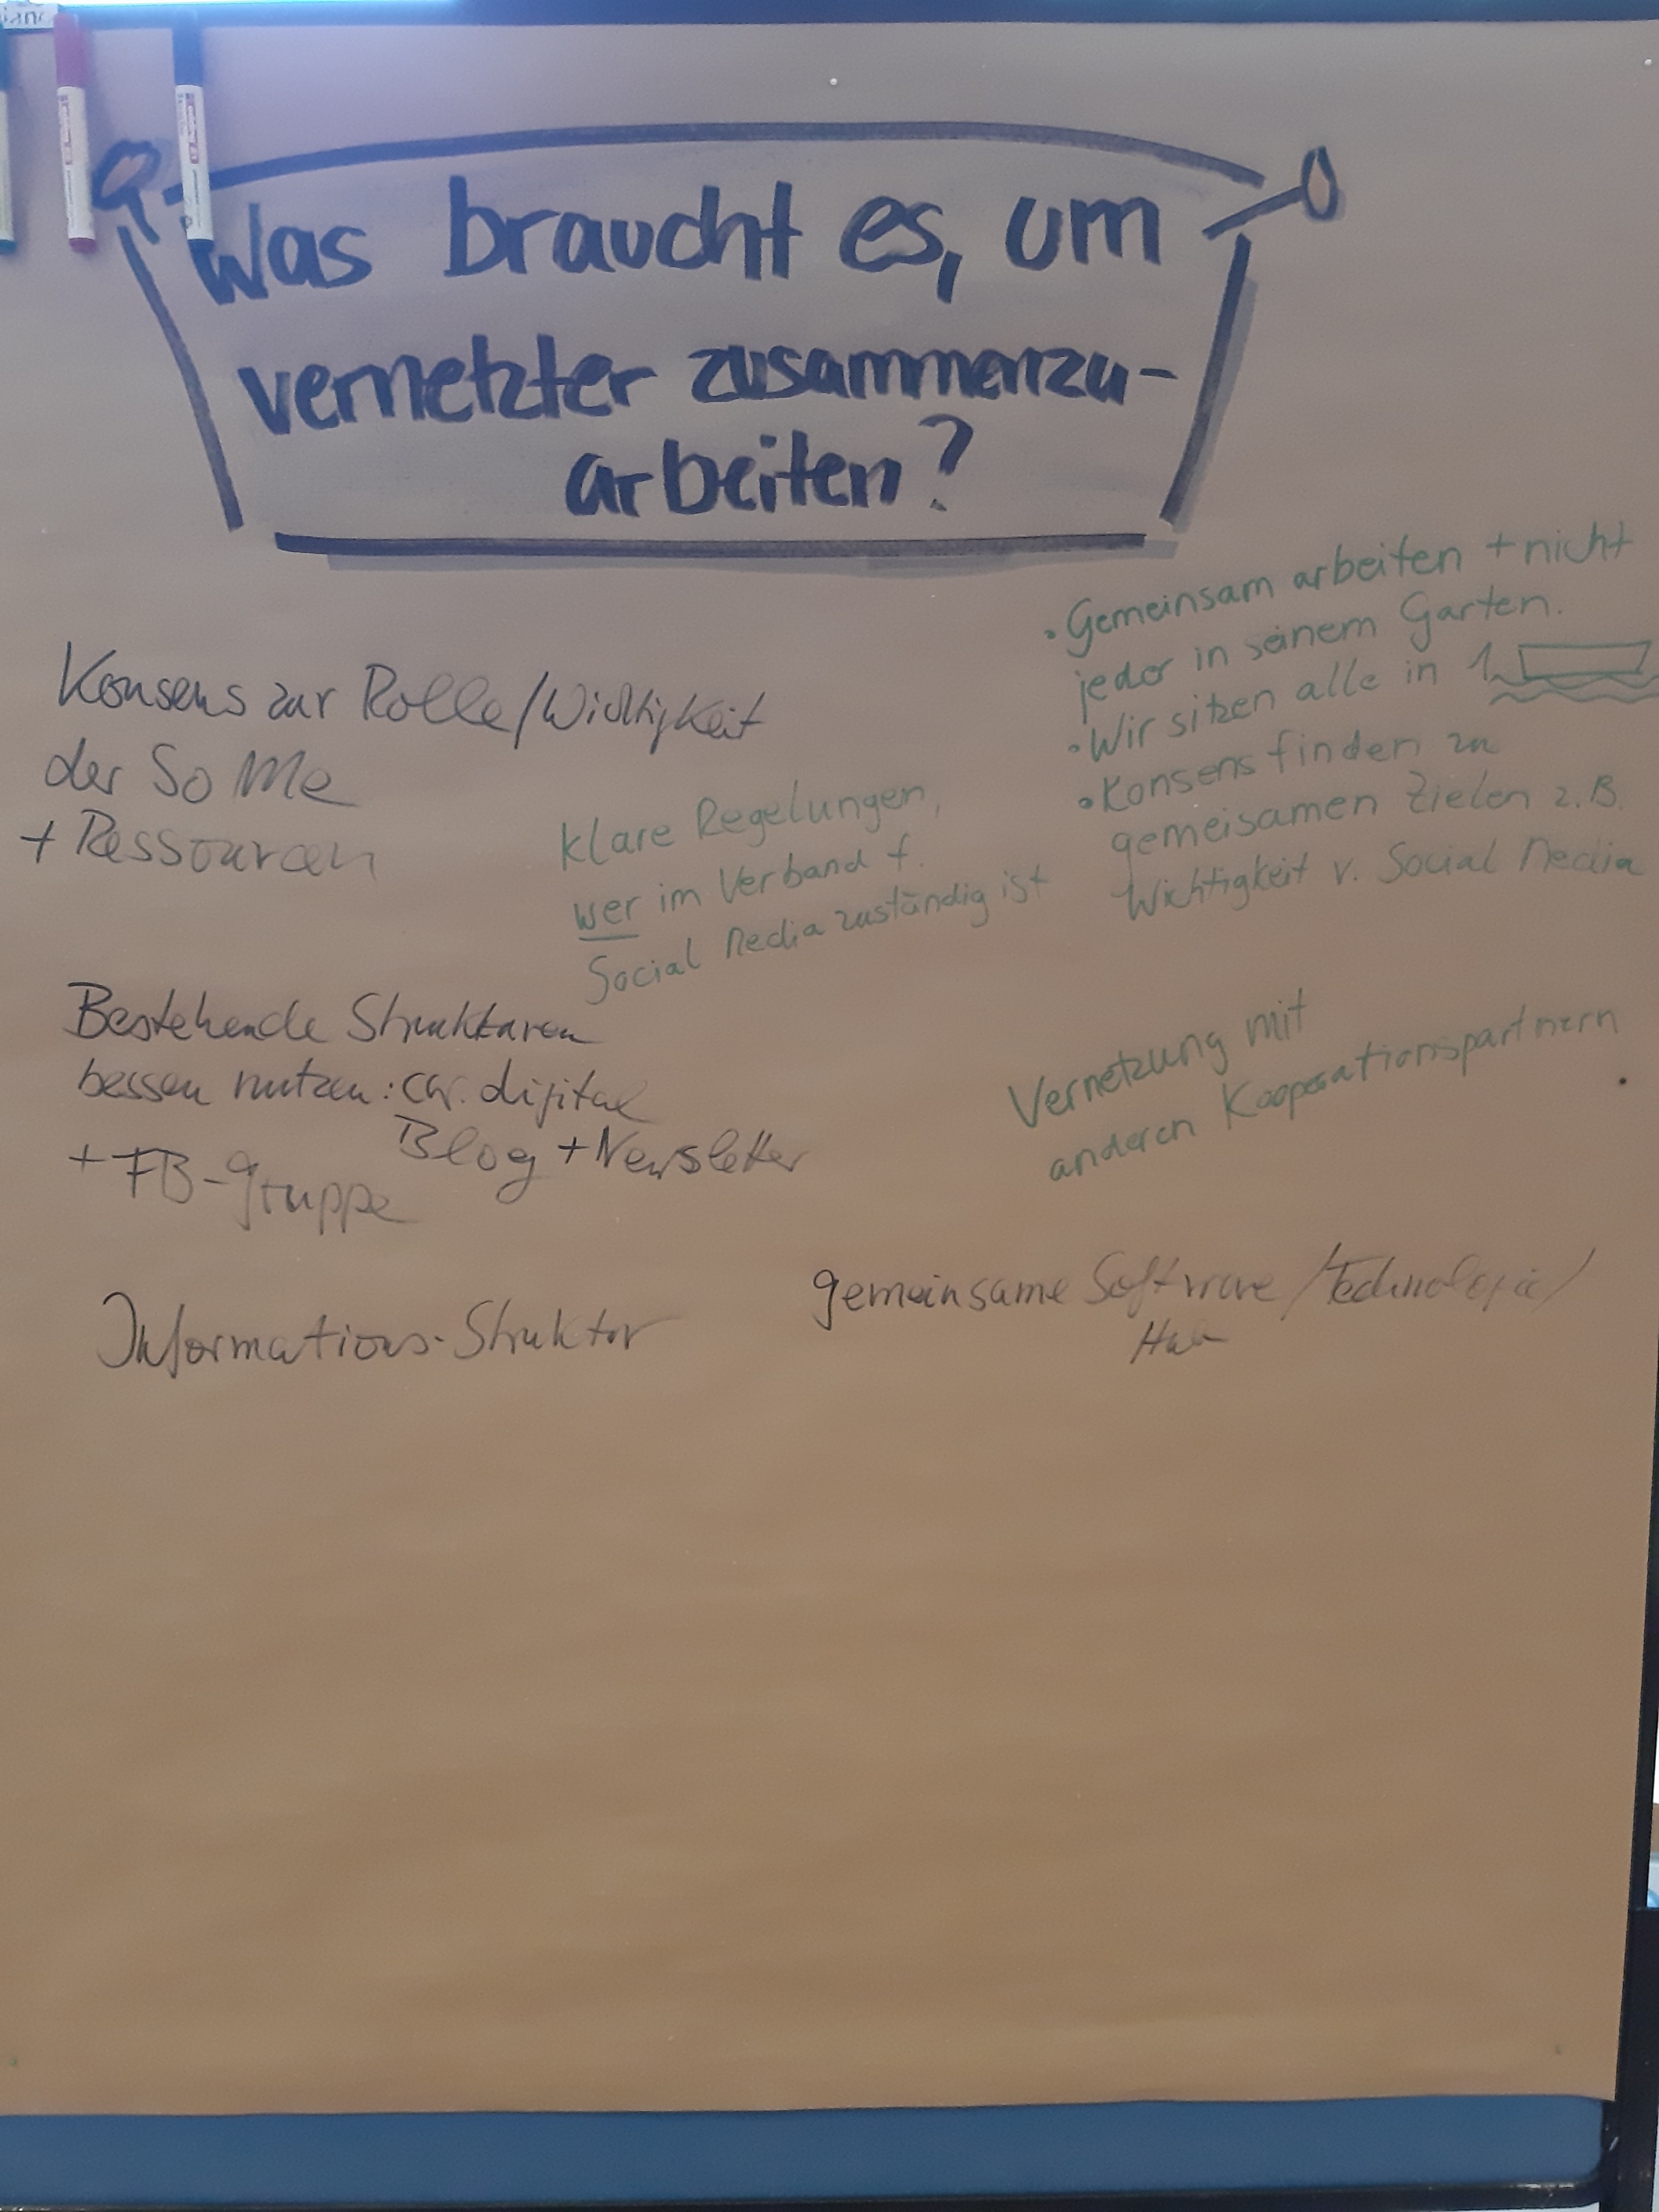 Was braucht es, um
vernetzter zusammenzu-
arbeiten?
• Gemeinsam arbeiten + nicht
jeder in seinem Garten.
• Wir sitzen alle in 1
• Konsens finden zu
gemeisamen Zielen z.B.
Wichtigkeit v. Social Media
Konsens zur Rolle/Wichtigkeit
der SoMe
+ Ressourcen
klare Regelungen,
wer im Verband f.
Social Media zuständig ist
Bestehende Strukturen
besser nutzen: digital
Blog + Newsletter
+ FB-Gruppe
Vernetzung mit
anderen Kooperationspartnern
Informations-Struktur
gemeinsame Software/Technologie/